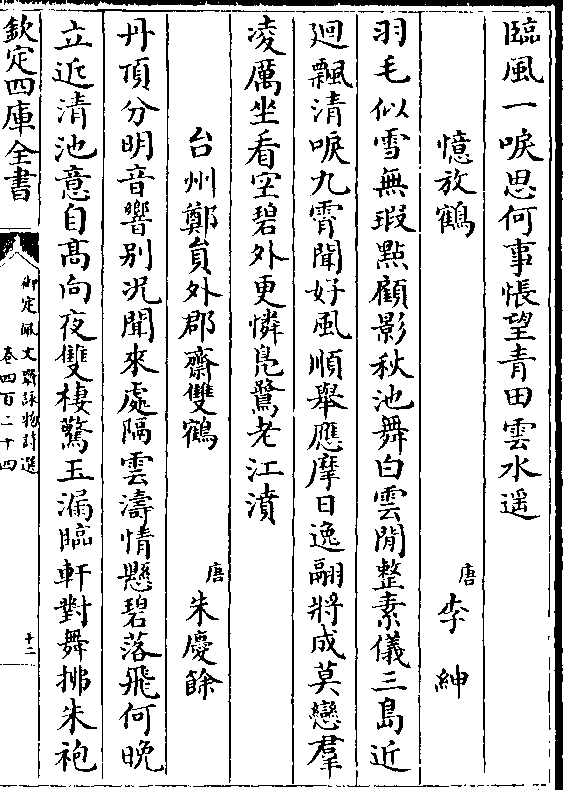 臨風一唳思何事悵望青田雲水遥
憶放鶴
唐李紳
羽毛似雪無瑕㸃顧影秋池舞白雲閒整素儀三島近
廻飄清唳九霄聞好風順舉應摩日逸翮將成莫戀羣
凌厲坐看空碧外更憐凫鷖老江濆
台州鄭員外郡齋雙鶴
唐朱慶餘
丹頂分明音響别况聞來處隔雲濤情懸碧落飛何晚
立近清池意自髙向夜雙棲驚玉漏臨軒對舞拂朱袍
欽定四庫全書
御定佩文齋詠物詩選
卷四百二十四
十二